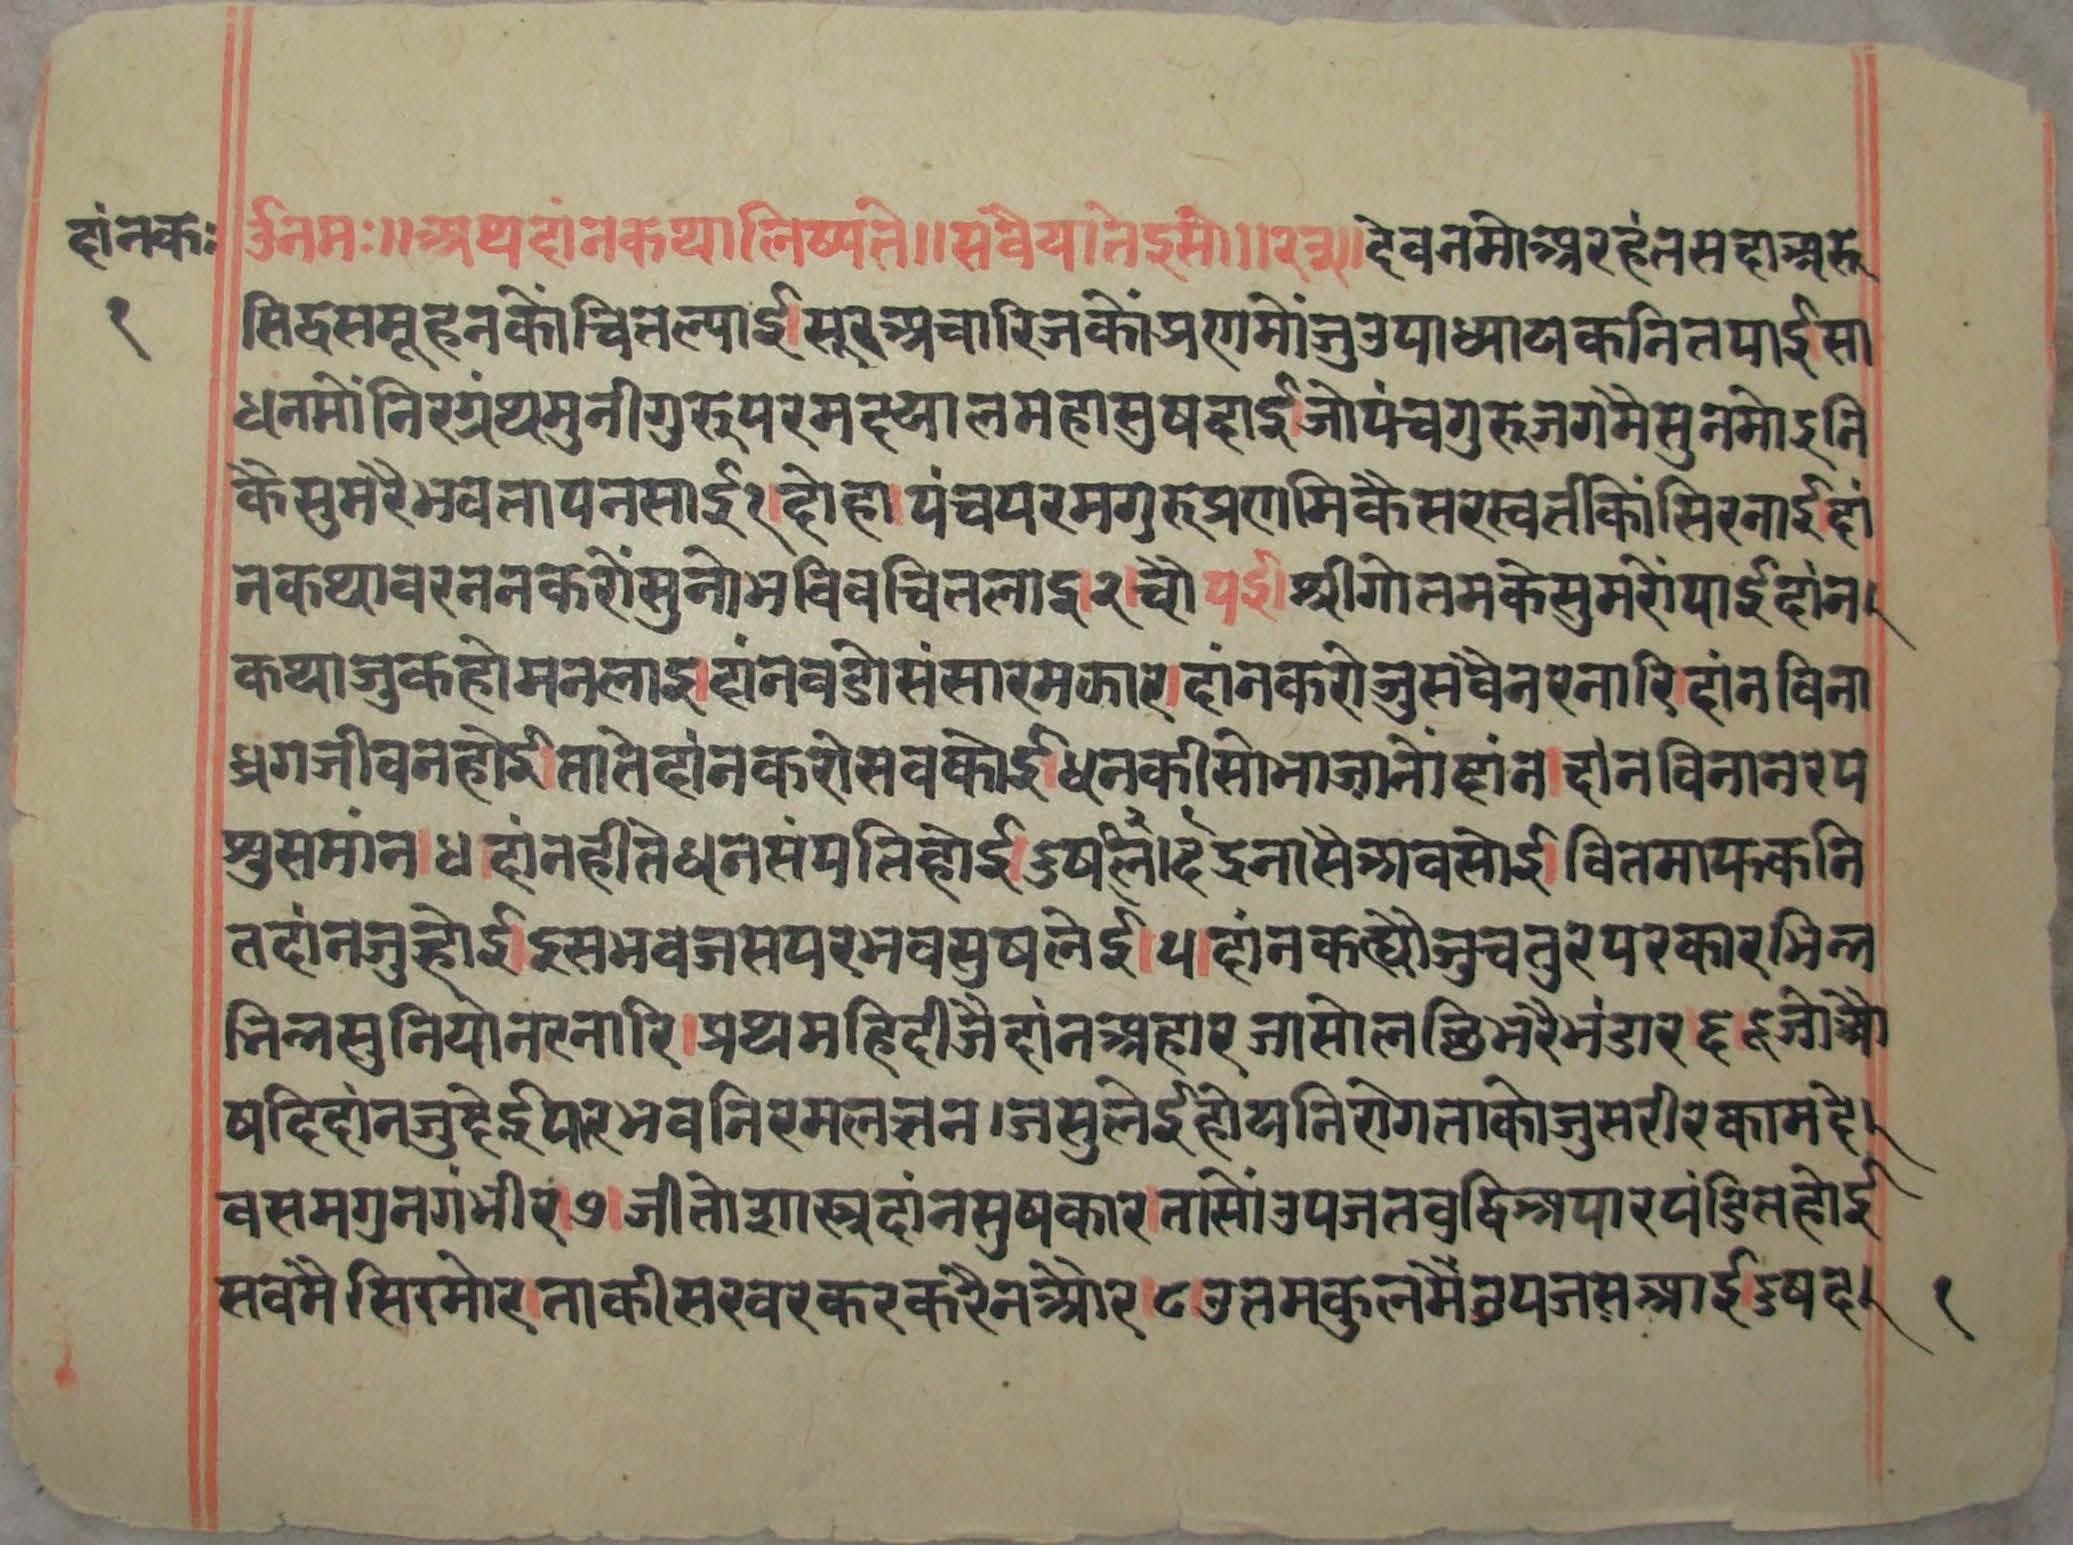 दांनकः
उंनमः॥अथदांनकथालिष्यते॥सवैयातेइसा॥२३॥देवनमोअरहंतसदाअरु
१
सिद्वसमूहनकोंचितल्याई।सूरअचारिजकोंप्रणमोंजुउपाध्यायकनितपाई।सा
धनमोंनिरग्रंथमुनीगुरूपरमदयालमहासुषदाई।जोपंचगुरूजगमैसुनमोइनि
कैसुमरैभवतापनसाई।१।दोहा।पंचपरमगुरूप्रणमिकैसरस्वतीकोंसिरनाई।दां
नकथावरननकरोंसुनोभविवचितलाइ।२।चौपई।श्रीगोतमकेसुमरोंपाईदांन।
कथाजुकहोमनलाइ।दांनवडोसंसारमझार।दांनकरोजुसवैनरनारि।दांनविना
ध्रगजीवनहोई।तातेदांनकरोसवकोई।धनकीसोभाजानोंदांन।दांनविनानरप
शुसमांन।४।दांनहीतेधनसंपतिहोई।दुषलदंद्रनासैअवसोई।वितमाफकनि
तदांनजुहोई।इसभवजसपरभवसुषलेई।५।दांनकह्यौजुचतुरपरकारभिन्न
भिन्नसुनियोनरनारि।प्रथमहिदीजैदांनअहार।जासोलछिभरैभंडार।६।जोऔ
षदिदांनजुदेई।परभवनिरमलतन।जसुलेईहोयनिरोगताकोजुसरीरकामदे।
वसमगुनगंभीर।७।जीतोशास्त्रदांनसुषकार।तासोंउपजतवुद्विअपारपंडितहोई
सवमैसिरमोर।ताकीसरवरकरकरैनओर।८।उतमकुलमैंउपजसआई।दुषद।
१